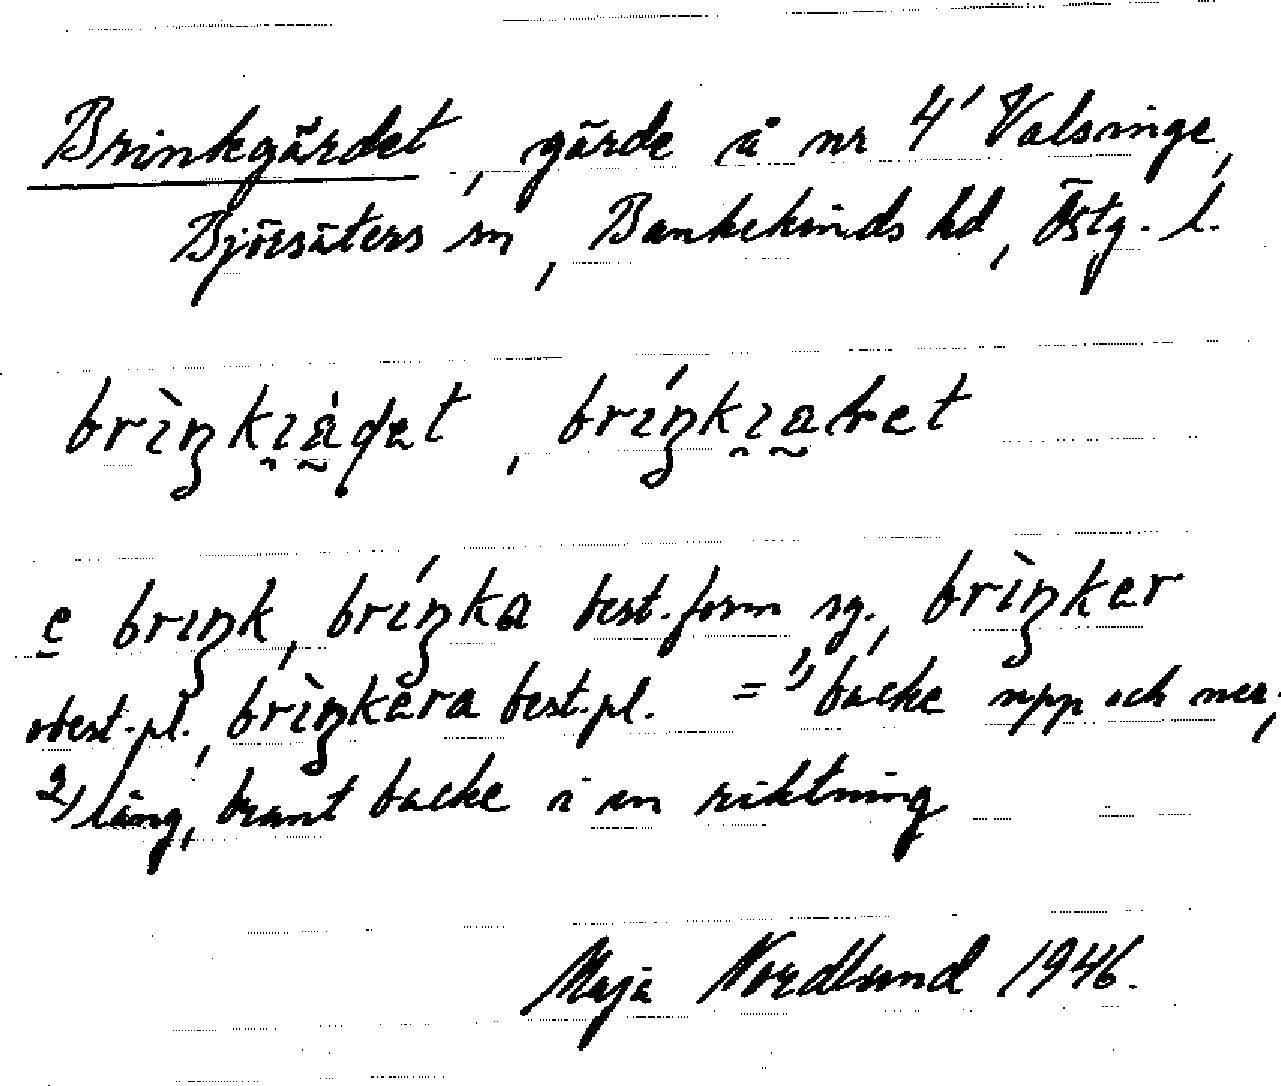 Brinkgärdet, gärde å nr 4 Valsinge,
Björsäters sn, Bankekinds hd, Östg. l.
e brıŋk, bríŋka best. form sg., brìŋker
obest. pl., brìŋkera best. pl. = 1) backe upp och ner,
2) lång, brant backe i en riktning
Maja Nordlund 1946.